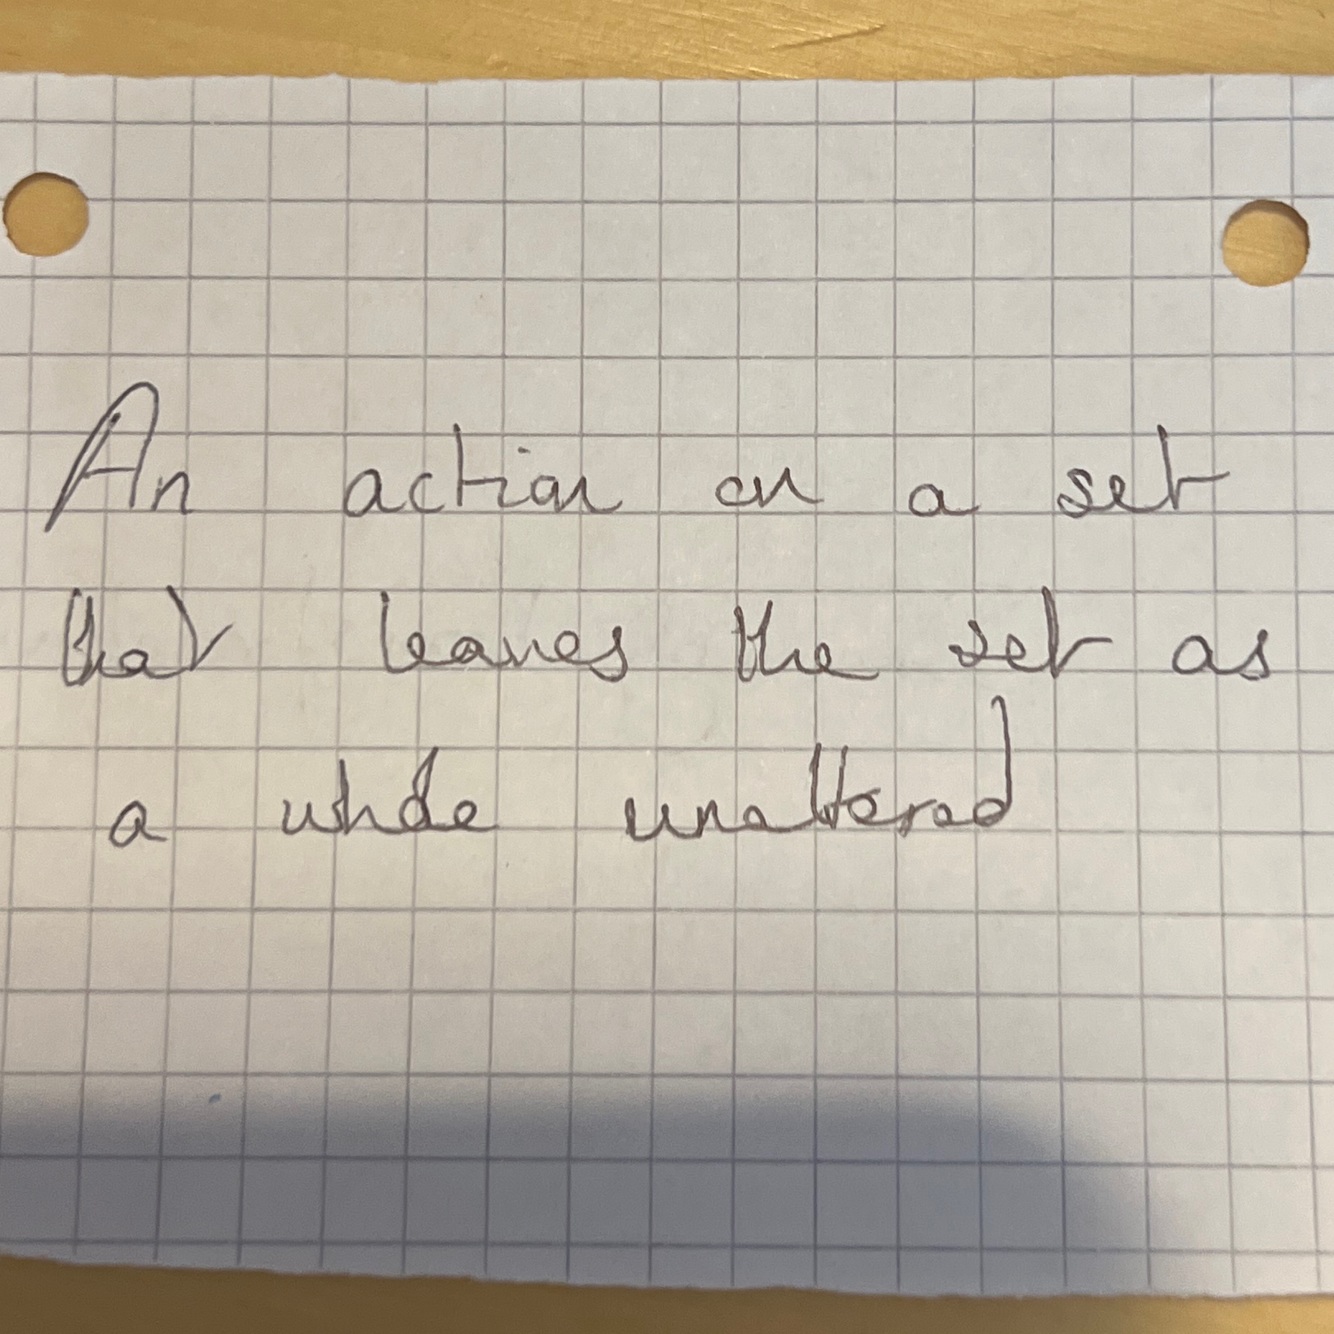 An action on a set
that leaves the set as
a whole unaltered